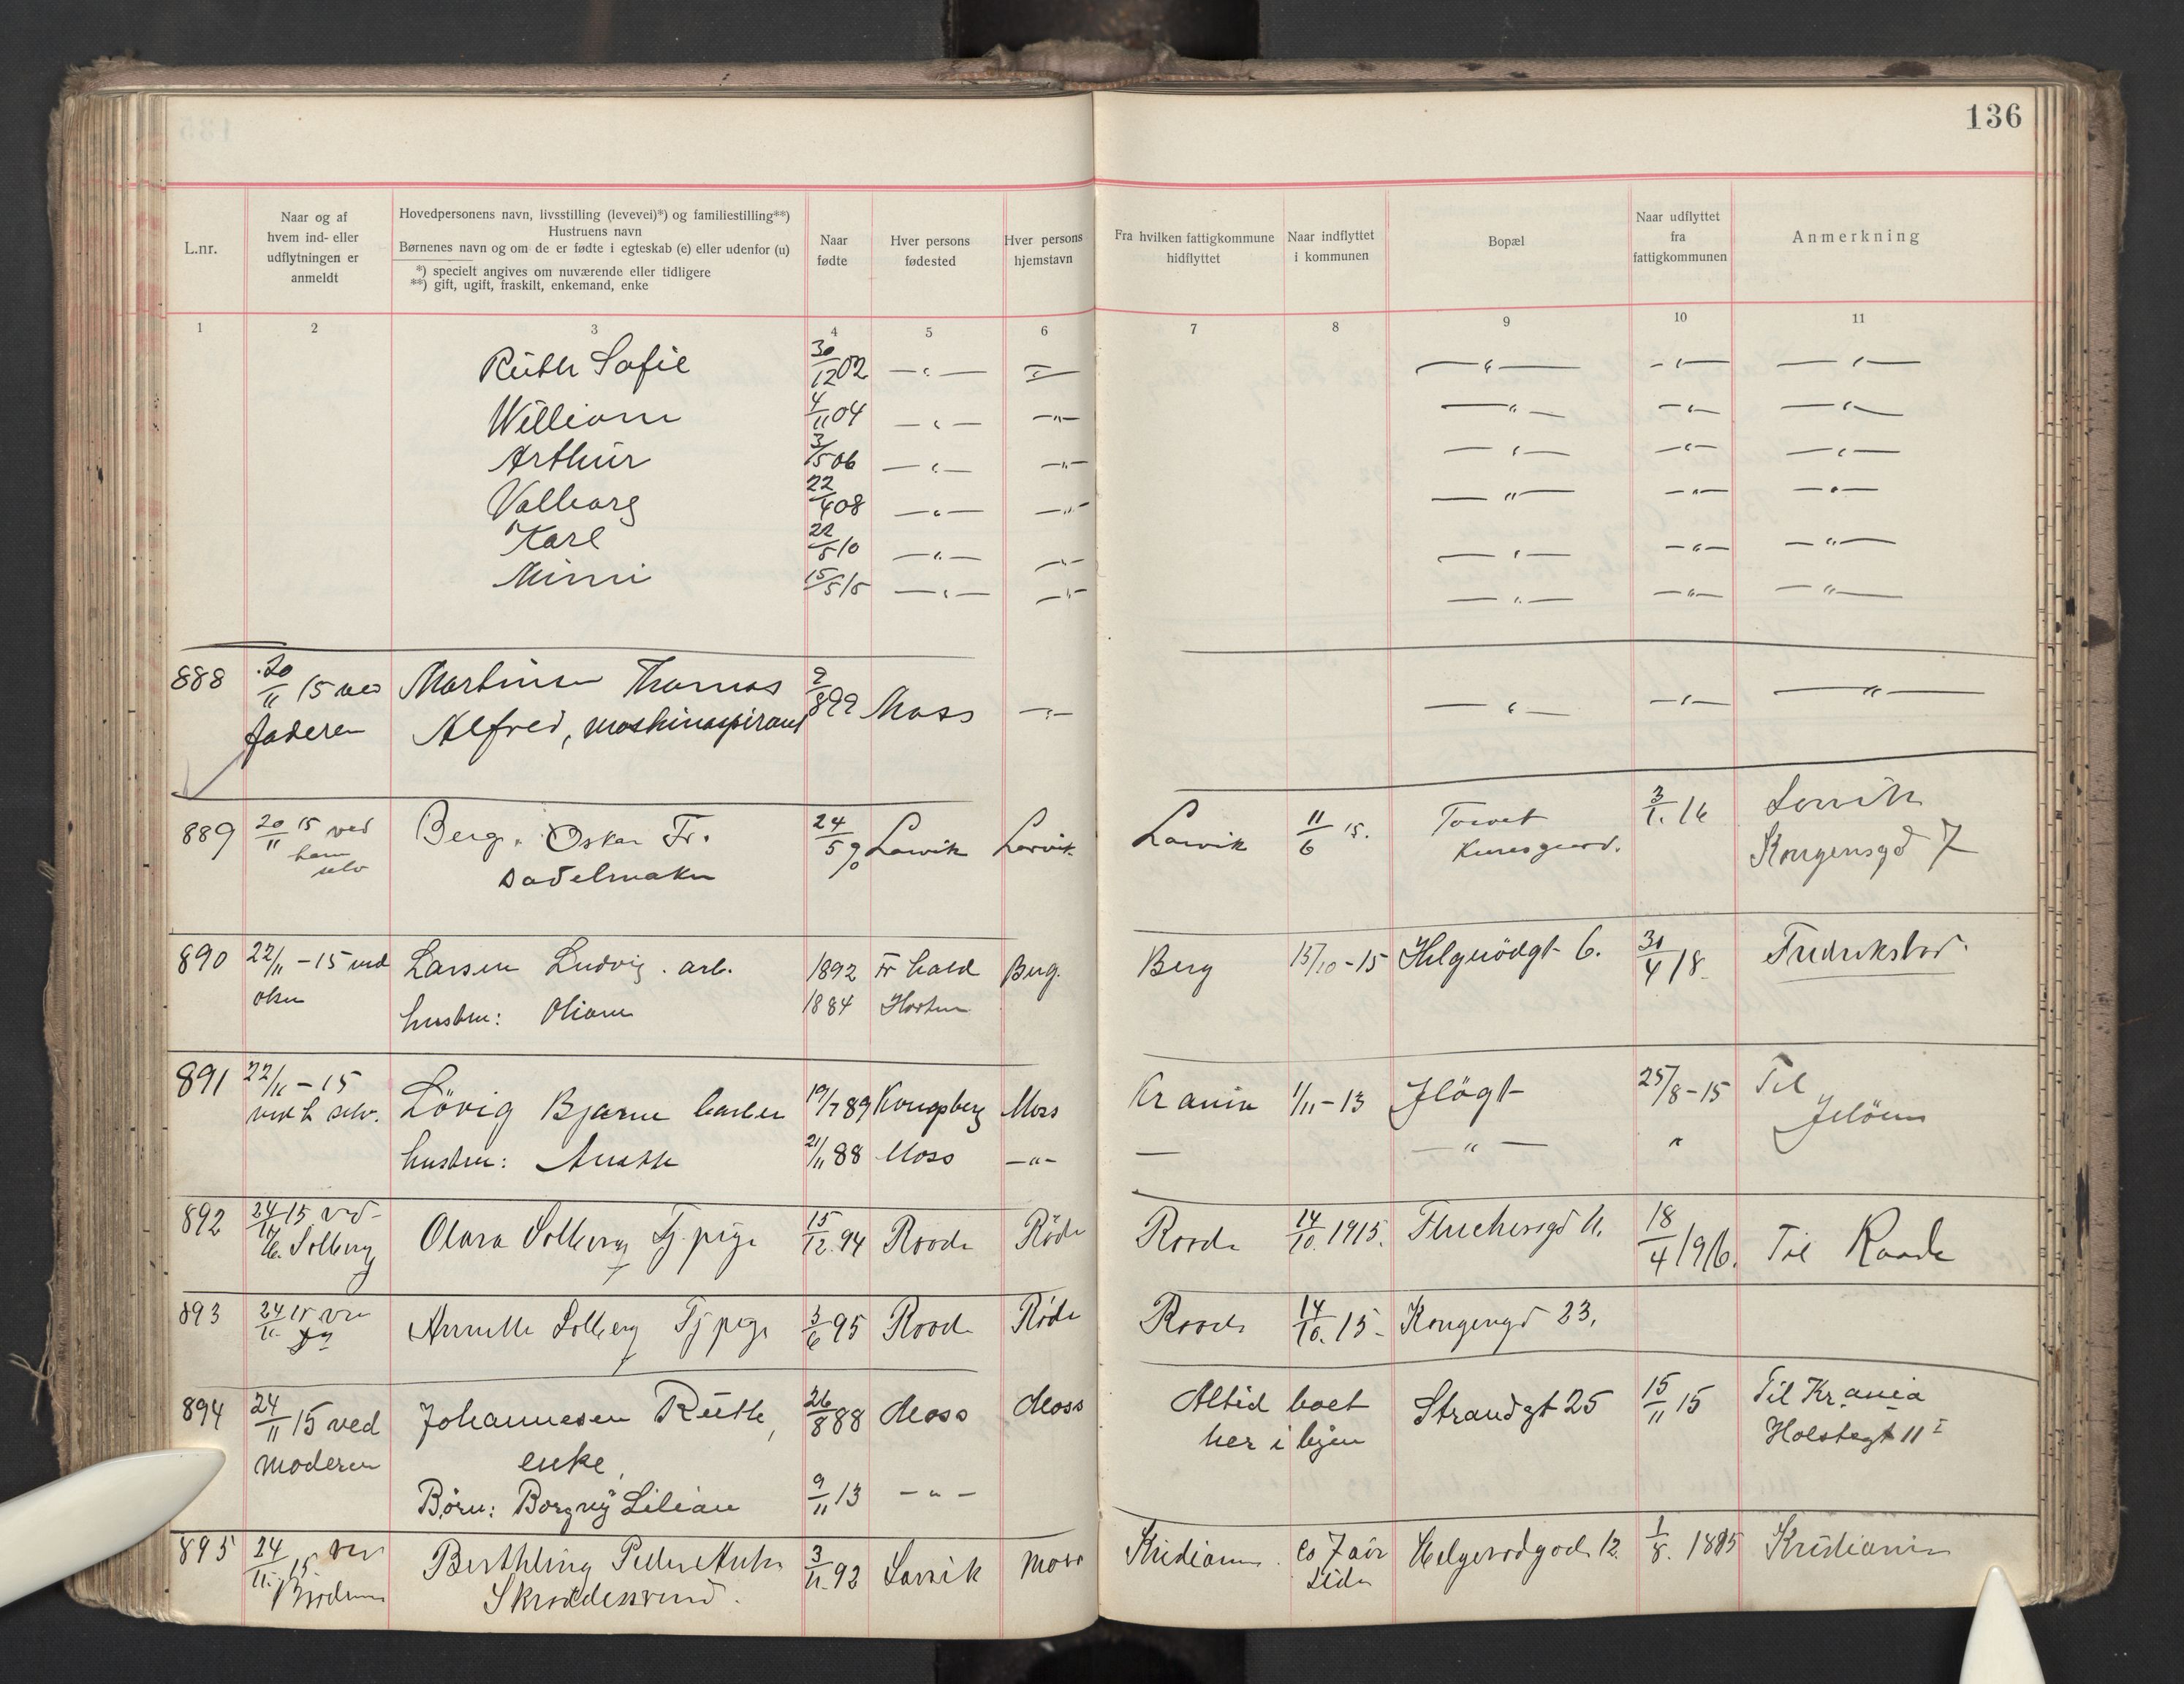 136
L.nr.
Naar og af
hvem ind- eller
udflytningen er
anmeldt
Hovedpersonens navn, livsstilling (levevei)*) og familiestilling**)
Hustruens navn
Børnenes navn og om de er fødte i egteskab (e) eller udenfor (u)
*) specielt angives om nuværende eller tidligere
**) gift, ugift, fraskilt, enkemand, enke
Naar
fødte
Hver persons
fødested
Hver persons
hjemstavn
Fra hvilken fattigkommune
hidflyttet
Naar indflyttet
i kommunen
Bopæl
Naar udflyttet
fra
fattigkommunen
Anmerkning
1 2 3 4 5 6 7 8 9 10 11
Ruth Sofie 30/12 02 —"— —"— —"— —"— —"—
William 4/11 04 —"— —"— —"— —"— —"—
Arthur 3/5 06 —"— —"— —"— —"— —"—
Valborg 22/4 08 —"— —"— —"— —"— —"—
Karl 22/5 10 —"— —"— —"— —"— —"—
Mimi 15/5 15 —"— —"— —"— —"— —"—
888 20/11 15 ved Martinsen Thomas 2/8 99 Moss —"— —"— —"— —"—
faderen Alfred, maskinaspirant
889 20/11 15 ved Berg, Oskar Fr. 24/5 90 Larvik Larvik Larvik 11/6 15. Torvet 3/1. 16 Larvik
ham selv sadelmaker Kongensgd 7
890 22/11 - 15 ved Larsen Ludvig. arb. 1892 Fr hald Berg. Berg 15/10 - 15 Helgerödgt 6. 30/4 18 Fredrikstad.
hustru: 1884 Horten
891 22/11 - 15 Lövig Bjarne barber 19/7 89 Kongsberg Moss Kr ania 1/11 - 13 25/8 - 15 Til
ved h selv. Jelöen
hustru: 21/11 88 Moss —"— — —"— "
892 24/11 15 ved Solberg Tj. pige 15/12. 94 Raade Råde Raade 14/10. 1915. 18/4 1916. Til Raade
Solberg
893 24/11 15 ved Annette Solberg Tj pige 3/6 95 Raade Råde Raade 14/10. 15 - Kongensgd 23.
894 24/11 15 ved Johannesen Ruth, 26/8 88 Moss Moss Altid boet Strandgt 25 15/11 15 Til Kr.ania
moderen enke, her i byen Holstsgt 11 I
Børn: Borgny Lilian 9/11 13 —"—
895 24/11. 15 ved Berthling 3/11. 92 Larvik Moss Kristiania. ca 7 aar 12. 1/8. Kristiania
siden